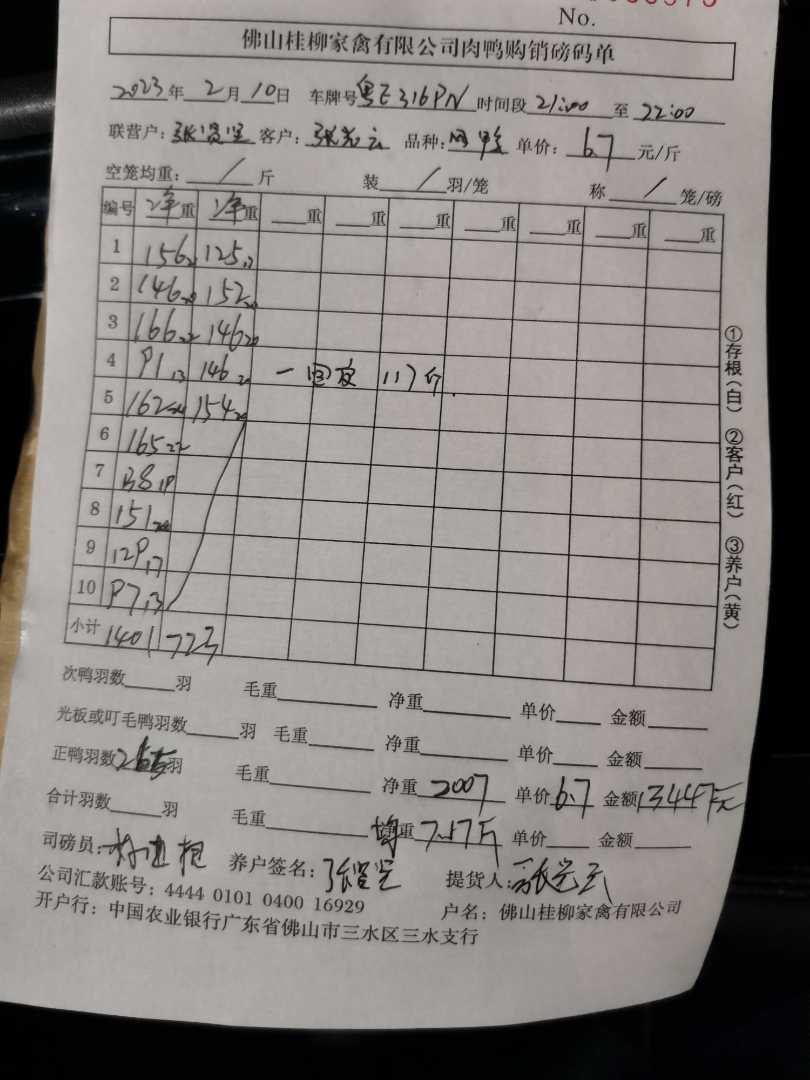 No.
佛山桂柳家禽有限公司肉鸭购销磅码单
2023年 2月 10日 车牌号粤E316PN时间段21:00至22:00
联营户: 客户: 品种: 单价: 6.7元/斤
空笼均重: / 斤 装 / 羽/笼 称 / 笼/磅
编号 净重 净重 重 重 重 重 重 重 重
1 156 125
2 146 152
3 166 22 146 20
4 91 13 146 20 117斤
5 162 154
6 165 22
7 138 18
8 151 20
9 129 17
10 97 13
小计 1401 723
①存根(白) ②客户(红) ③养户(黄)
次鸭羽数 羽 毛重 净重 单价 金额
光板或叮毛鸭羽数 羽 毛重 净重 单价 金额
正鸭羽数265羽 毛重 净重 2007 单价6.7 金额13447元
合计羽数 羽 毛重 重 7.57斤 单价 金额
司磅员: 养户签名: 提货人:
公司汇款账号: 4444 0101 0400 16929 户名: 佛山桂柳家禽有限公司
开户行: 中国农业银行广东省佛山市三水区三水支行